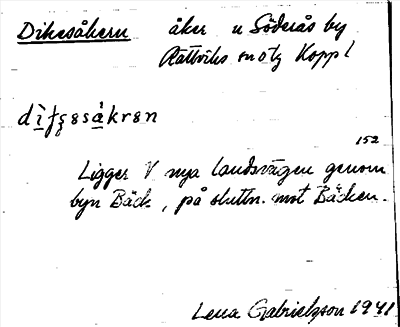 Dikesåkern åker u Söderås by
Rättviks sn o tg Kopp l
dìfꞩəsåkrən
152
Ligger V nya landsvägen genom
byn Bäck, på sluttn. mot Bäcken.
Lena Gabrielsson 1941